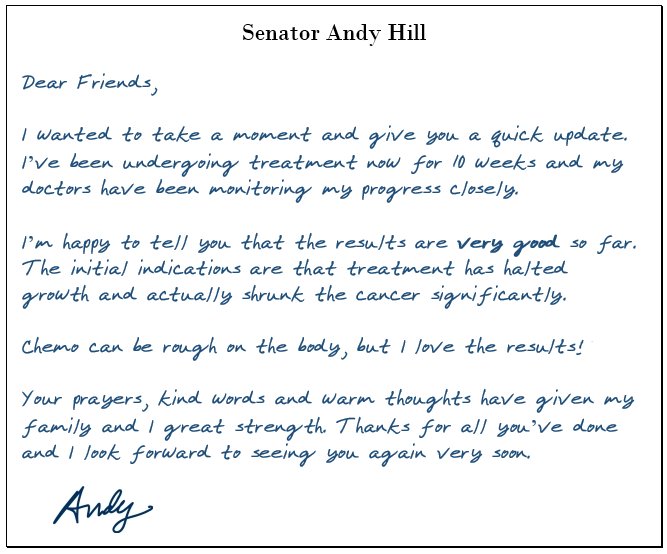 Senator Andy Hill
Dear Friends,
I wanted to take a moment and give you a quick update.
I've been undergoing treatment now for 10 weeks and my
doctors have been monitoring my progress closely.
I'm happy to tell you that the results are very good so far.
The initial indications are that treatment has halted
growth and actually shrunk the cancer significantly.
Chemo can be rough on the body, but I love the results!
Your prayers, kind words and warm thoughts have given my
family and I great strength. Thanks for all you've done
and I look forward to seeing you again very soon.
Andy